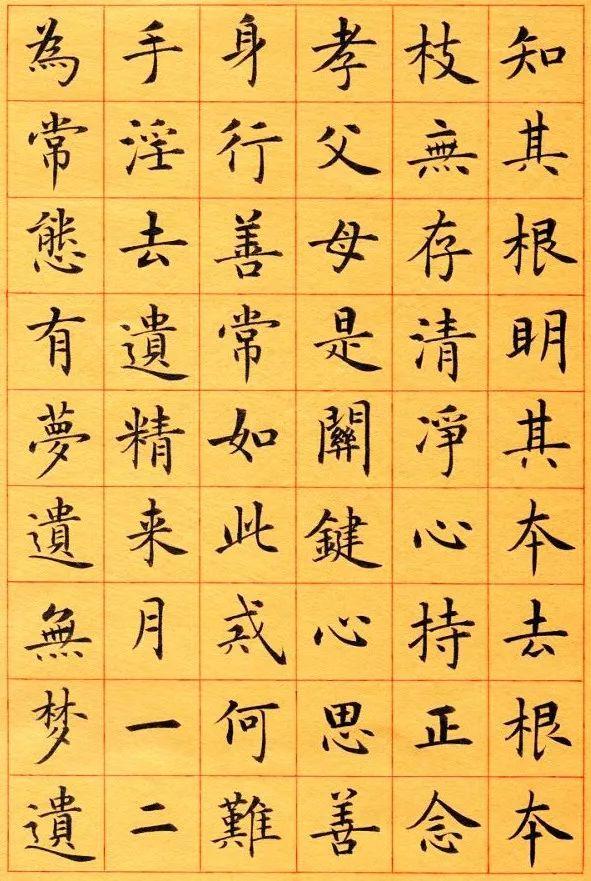 知其根明其本去根本
枝無存清淨心持正念
孝父母是關鍵心思善
身行善常如此戒何難
手淫去遺精来月一二
為常態有夢遺無梦遺